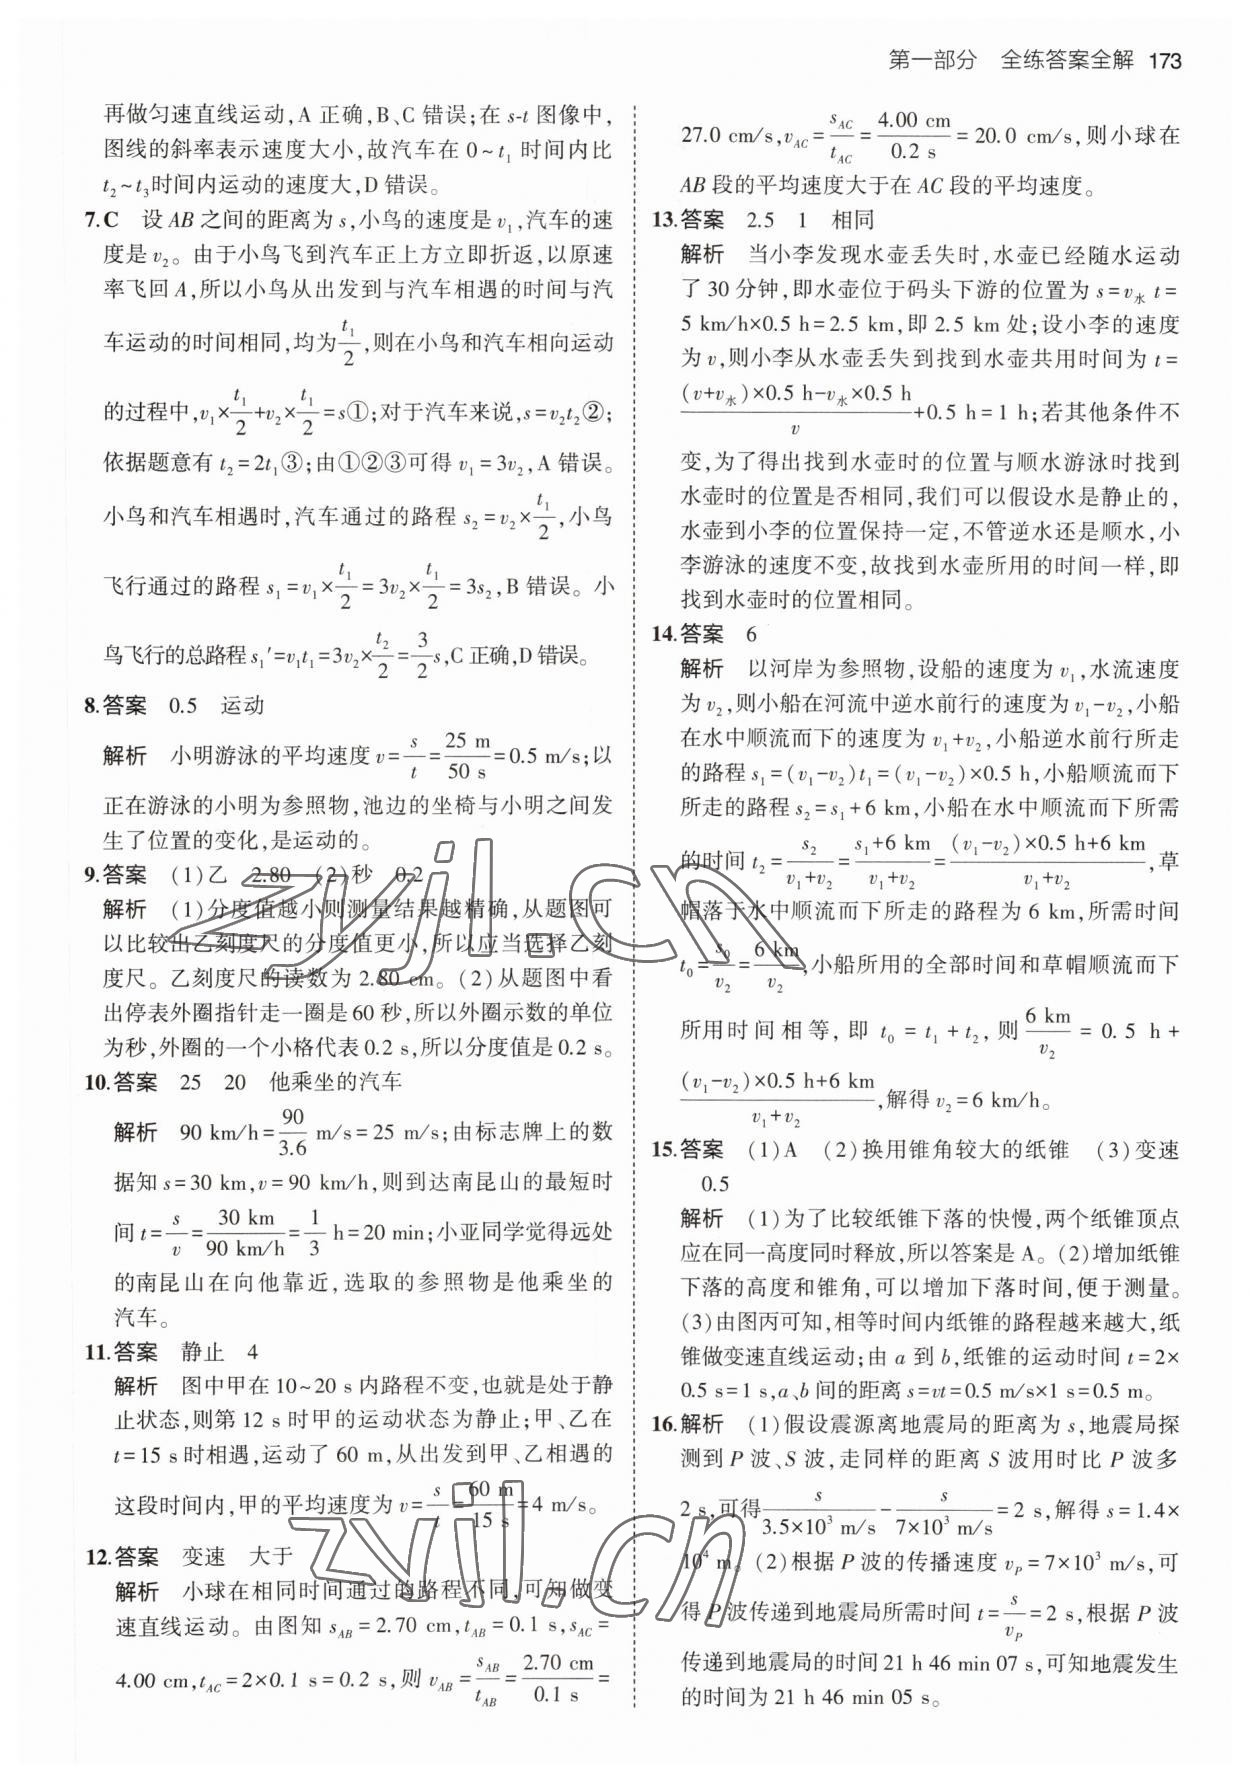 第一部分 全练答案全解 173
再做匀速直线运动,A 正确,B、C 错误;在 s-t 图像中,
图线的斜率表示速度大小,故汽车在 0~t₁ 时间内比
t₂~t₃时间内运动的速度大,D 错误。
7.C 设 AB 之间的距离为 s,小鸟的速度是 v₁,汽车的速
度是 v₂。由于小鸟飞到汽车正上方立即折返,以原速
率飞回 A,所以小鸟从出发到与汽车相遇的时间与汽
车运动的时间相同,均为t₁/2,则在小鸟和汽车相向运动
的过程中,v₁×t₁/2+v₂×t₁/2=s①;对于汽车来说,s=v₂t₂②;
依据题意有 t₂=2t₁③;由①②③可得 v₁=3v₂,A 错误。
小鸟和汽车相遇时,汽车通过的路程 s₂=v₂×t₁/2,小鸟
飞行通过的路程 s₁=v₁×t₁/2=3v₂×t₁/2=3s₂,B 错误。小
鸟飞行的总路程s₁'=v₁t₁=3v₂×t₂/2=3/2s,C 正确,D 错误。
8.答案 0.5 运动
解析 小明游泳的平均速度 v=s/t=25 m/50 s=0.5 m/s;以
正在游泳的小明为参照物,池边的坐椅与小明之间发
生了位置的变化,是运动的。
9.答案 (1)乙 2.80 (2)秒 0.2
解析 (1)分度值越小则测量结果越精确,从题图可
以比较出乙刻度尺的分度值更小,所以应当选择乙刻
度尺。乙刻度尺的读数为 2.80 cm。(2)从题图中看
出停表外圈指针走一圈是 60 秒,所以外圈示数的单位
为秒,外圈的一个小格代表 0.2 s,所以分度值是 0.2 s。
10.答案 25 20 他乘坐的汽车
解析 90 km/h=90/3.6 m/s=25 m/s;由标志牌上的数
据知 s=30 km,v=90 km/h,则到达南昆山的最短时
间 t=s/v=30 km/90 km/h=1/3 h=20 min;小亚同学觉得远处
的南昆山在向他靠近,选取的参照物是他乘坐的
汽车。
11.答案 静止 4
解析 图中甲在 10~20 s 内路程不变,也就是处于静
止状态,则第 12 s 时甲的运动状态为静止;甲、乙在
t=15 s 时相遇,运动了 60 m,从出发到甲、乙相遇的
这段时间内,甲的平均速度为 v=s/t=60 m/15 s=4 m/s。
12.答案 变速 大于
解析 小球在相同时间通过的路程不同,可知做变
速直线运动。由图知 s_AB=2.70 cm,t_AB=0.1 s,s_AC=
4.00 cm,t_AC=2×0.1 s=0.2 s,则 v_AB=s_AB/t_AB=2.70 cm/0.1 s=
27.0 cm/s,v_AC=s_AC/t_AC=4.00 cm/0.2 s=20.0 cm/s,则小球在
AB 段的平均速度大于在 AC 段的平均速度。
13.答案 2.5 1 相同
解析 当小李发现水壶丢失时,水壶已经随水运动
了 30 分钟,即水壶位于码头下游的位置为 s=v水 t=
5 km/h×0.5 h=2.5 km,即 2.5 km 处;设小李的速度
为 v,则小李从水壶丢失到找到水壶共用时间为 t=
(v+v水)×0.5 h-v水×0.5 h/v+0.5 h=1 h;若其他条件不
变,为了得出找到水壶时的位置与顺水游泳时找到
水壶时的位置是否相同,我们可以假设水是静止的,
水壶到小李的位置保持一定,不管逆水还是顺水,小
李游泳的速度不变,故找到水壶所用的时间一样,即
找到水壶时的位置相同。
14.答案 6
解析 以河岸为参照物,设船的速度为 v₁,水流速度
为 v₂,则小船在河流中逆水前行的速度为 v₁-v₂,小船
在水中顺流而下的速度为 v₁+v₂,小船逆水前行所走
的路程 s₁=(v₁-v₂)t₁=(v₁-v₂)×0.5 h,小船顺流而下
所走的路程 s₂=s₁+6 km,小船在水中顺流而下所需
的时间 t₂=s₂/(v₁+v₂)=(s₁+6 km)/(v₁+v₂)=((v₁-v₂)×0.5 h+6 km)/(v₁+v₂),草
帽落于水中顺流而下所走的路程为 6 km,所需时间
t₀=s₀/v₂=6 km/v₂,小船所用的全部时间和草帽顺流而下
所用时间相等,即 t₀=t₁+t₂,则6 km/v₂=0.5 h+
((v₁-v₂)×0.5 h+6 km)/(v₁+v₂),解得 v₂=6 km/h。
15.答案 (1)A (2)换用锥角较大的纸锥 (3)变速
0.5
解析 (1)为了比较纸锥下落的快慢,两个纸锥顶点
应在同一高度同时释放,所以答案是 A。(2)增加纸锥
下落的高度和锥角,可以增加下落时间,便于测量。
(3)由图丙可知,相等时间内纸锥的路程越来越大,纸
锥做变速直线运动;由 a 到 b,纸锥的运动时间 t=2×
0.5 s=1 s,a、b 间的距离 s=vt=0.5 m/s×1 s=0.5 m。
16.解析 (1)假设震源离地震局的距离为 s,地震局探
测到 P 波、S 波,走同样的距离 S 波用时比 P 波多
2 s,可得s/(3.5×10³ m/s)-s/(7×10³ m/s)=2 s,解得 s=1.4×
10⁴ m。(2)根据 P 波的传播速度 v_P=7×10³ m/s,可
得 P 波传递到地震局所需时间 t=s/v_P=2 s,根据 P 波
传递到地震局的时间 21 h 46 min 07 s,可知地震发生
的时间为 21 h 46 min 05 s。
zyjl.cn
zyjl.cn